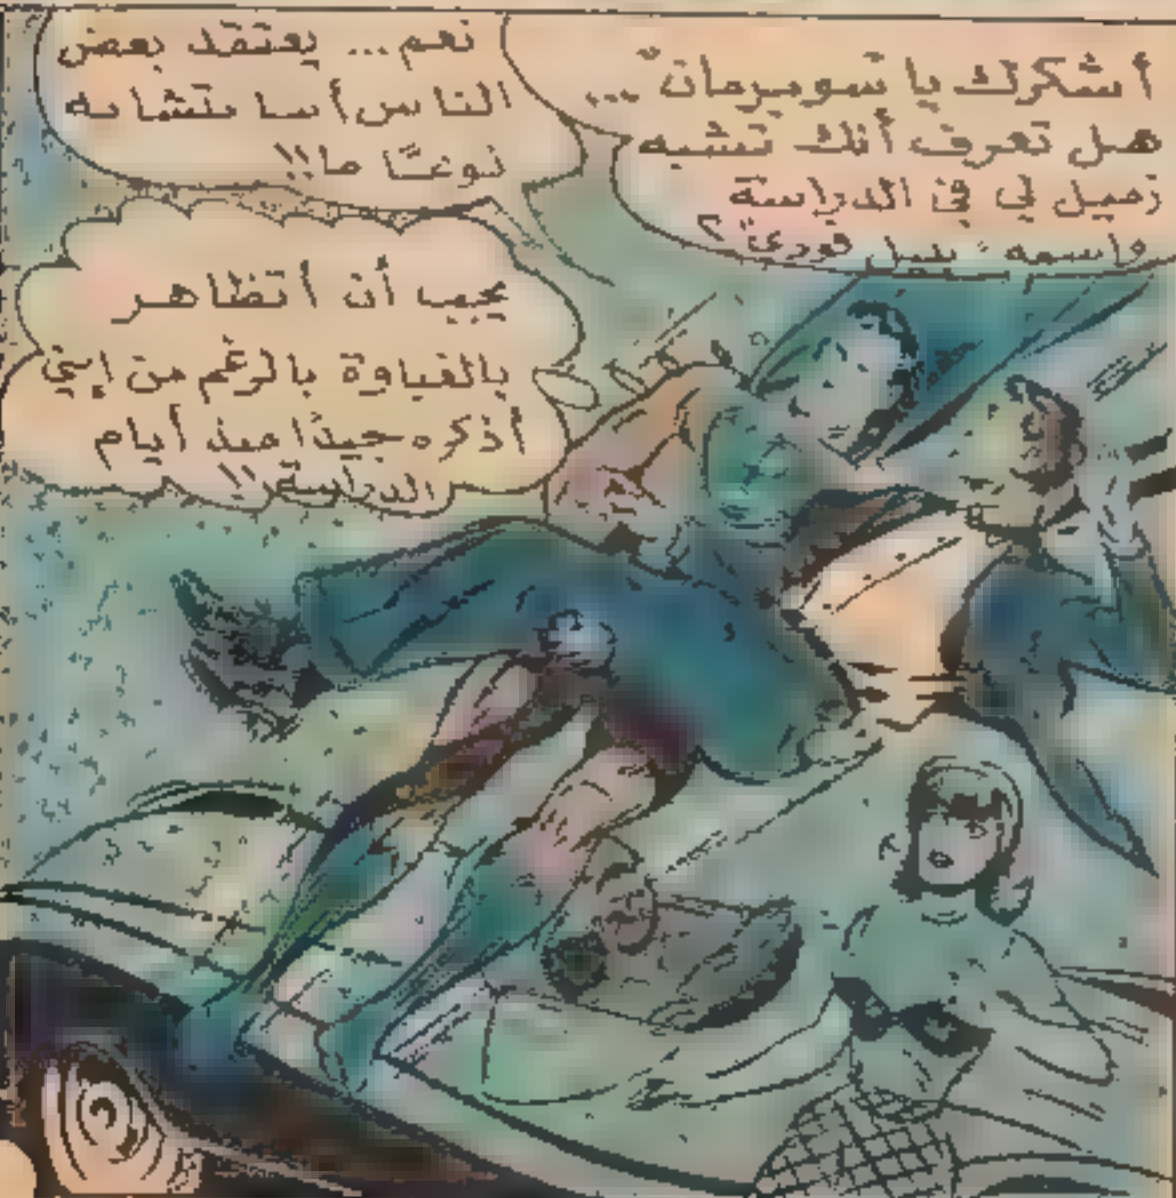 أشكرك يا سوبرمان ...
هل تعرف أنك تشبه
زميل لي في الدراسة
واسمه نبيل فوزي ؟
نعم ... يعتقد بعض
الناس أننا نتشابه
نوعًا ما !!
يجب أن أتظاهر
بالغباوة بالرغم من إنني
أذكره جيدًا منذ أيام
الدراسة !!